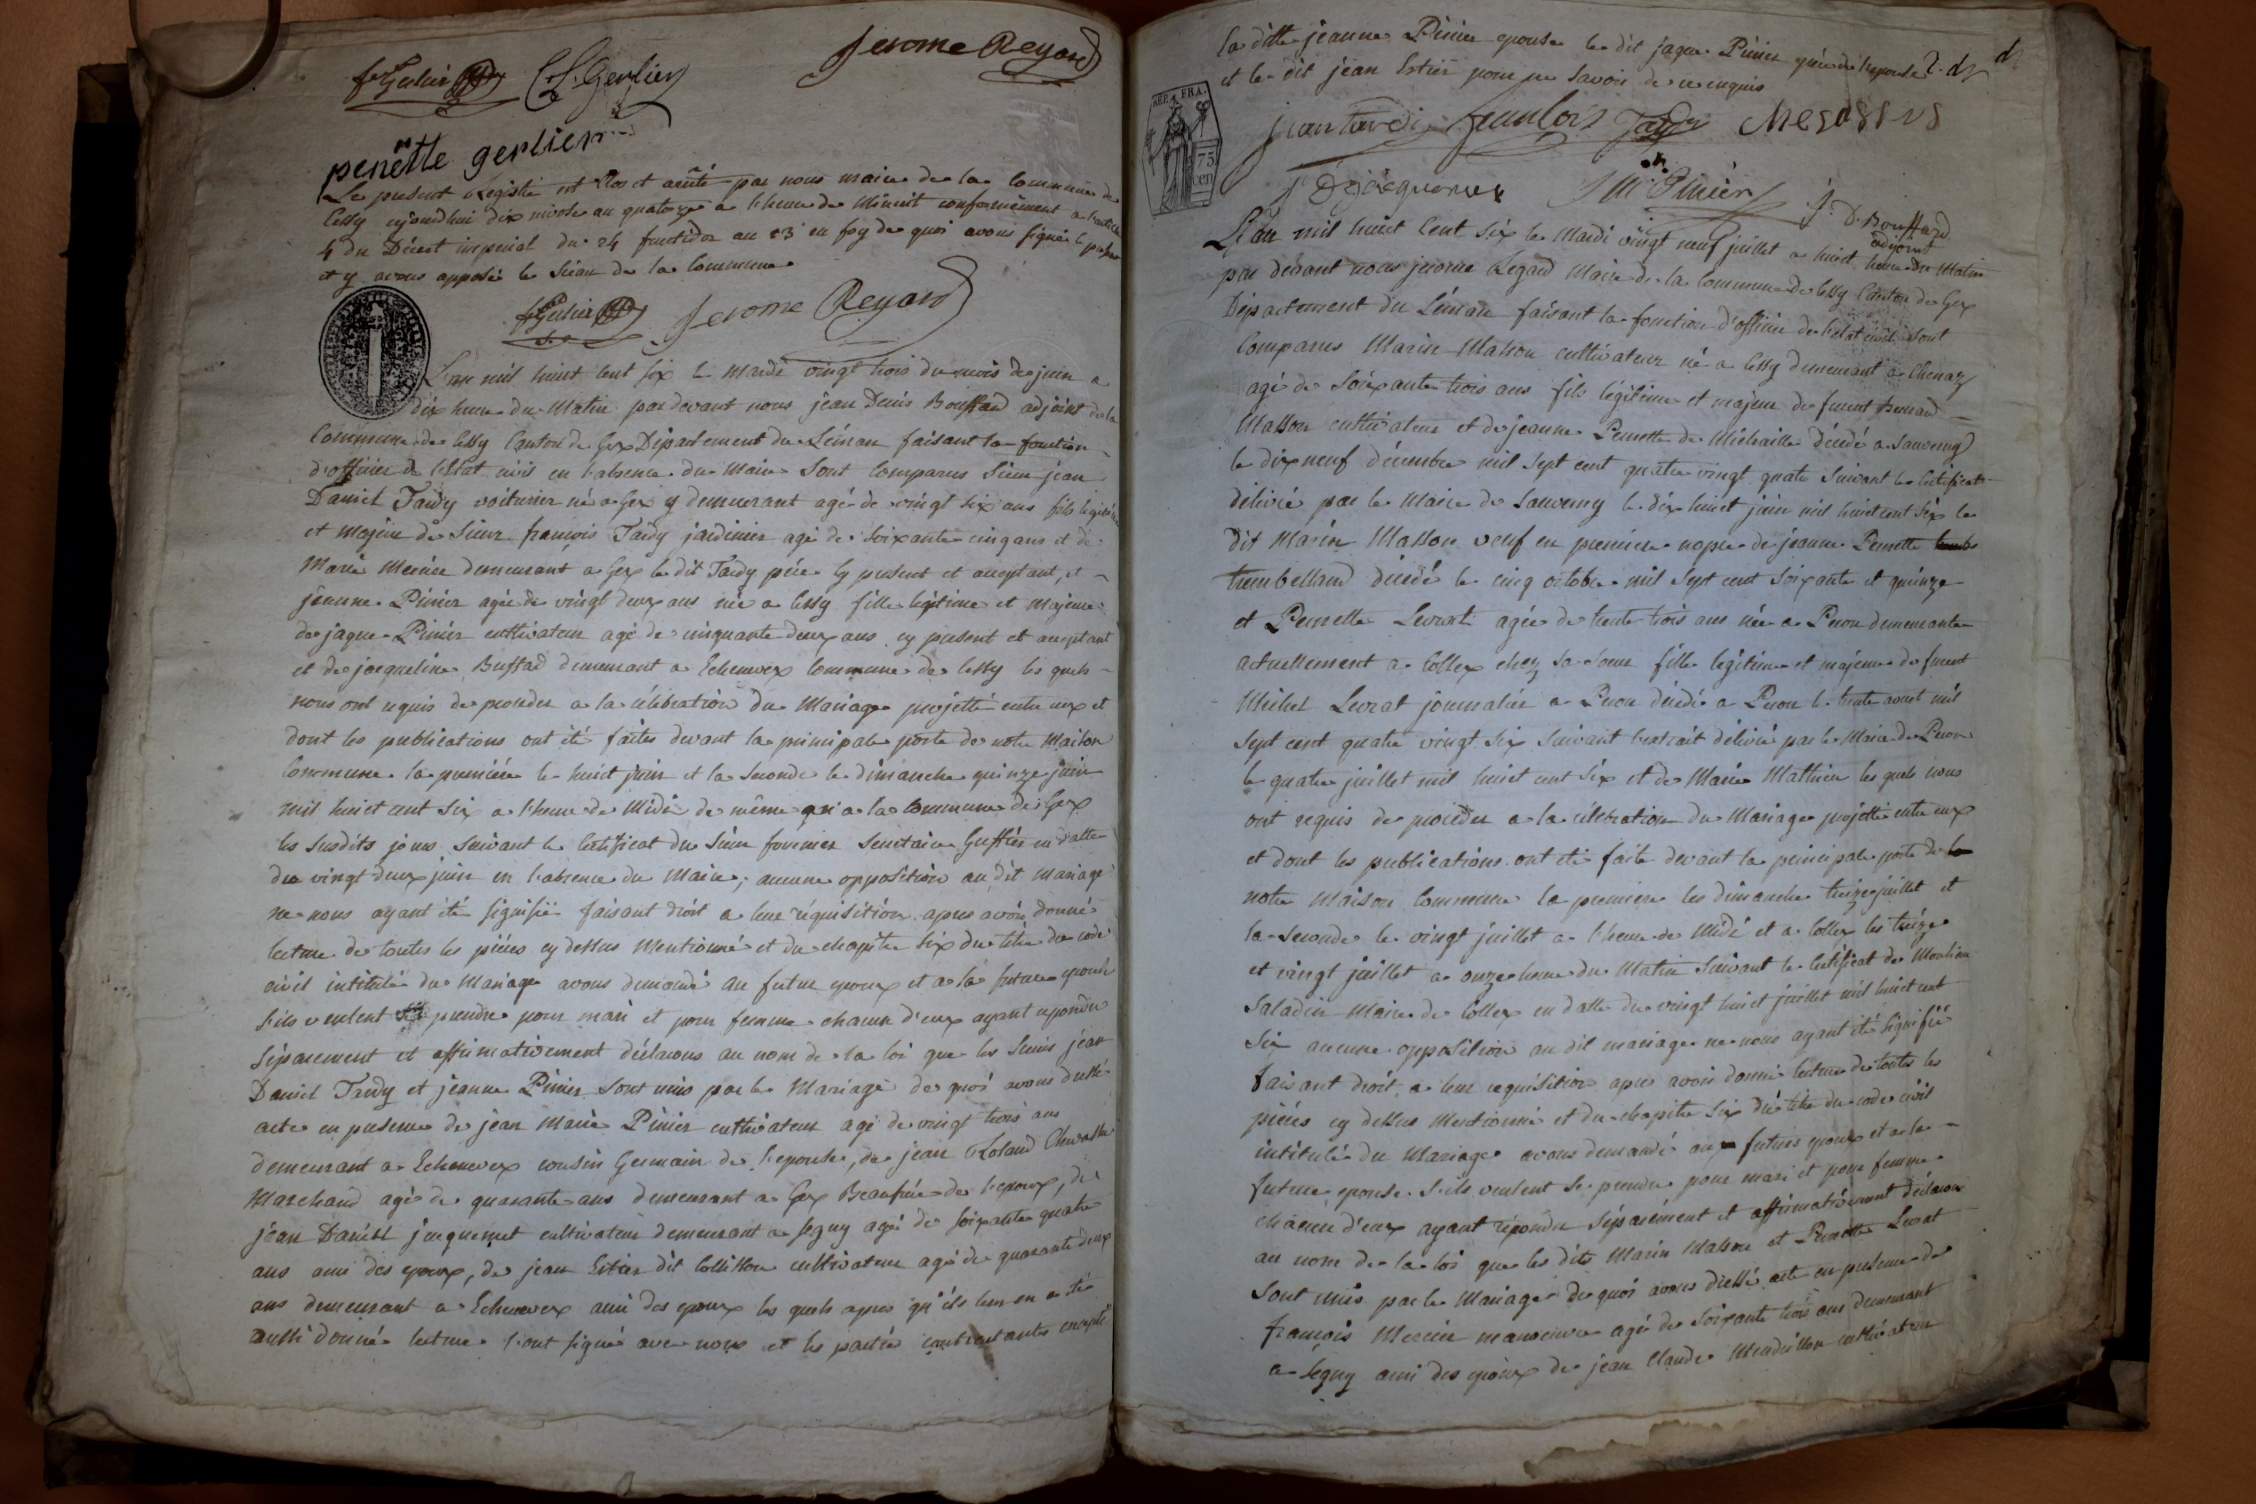 Jerome Regard
f Gerlier C. L. Gerlier
penëtte gerlier
Le present Registre est Clos et arrêté par nous maire de la Commune de
Cessy aujourdhui dix nivose an quatorze a l'heure de Minuit conformement a l'article
4 du Décret imperial du 24 fructidor an 13 en foy de quoi avons signé le present
et y avons apposé le Sceau de la Commune
f Gerlier Jerome Regard
L'an mil huit cent six le Mardi vingt trois du mois de juin a
dix heure du Matin pardevant nous jean Denis Bouffard adjoint de la
Commune de Cessy Canton de Gex Département du Léman faisant la fonction
d'officier de l'Etat civil en l'absence du Maire Sont Comparus Sieur jean
Daniel Tardy voiturier né a Gex y demeurant agé de vingt six ans fils légitime
et majeur de Sieur françois Tardy jardinier agé de soixante cinq ans et de
Marie Mercier demeurant a Gex le dit Tardy père cy present et acceptant, et
jeanne Pinier agée de vingt deux ans née a Cessy fille legitime et majeure
de jaque Pinier cultivateur agé de cinquante deux ans cy present et acceptant
et de jacqueline Buffad demeurant a Echenevex Commune de Cessy les quels
nous ont requis de proceder a la célébration du Mariage projetté entre eux et
dont les publications ont été faites devant la principale porte de notre Maison
Commune la première le huit juin et la seconde le dimanche quinze juin
mil huit cent six a l'heure de Midi de même qu'a la Commune de Gex
les susdits jours suivant le Certificat du Sieur fournier Secretaire Greffier en datte
du vingt deux juin en l'absence du Maire; aucune opposition au dit Mariage
ne nous ayant été signifié faisant droit a leur réquisition apres avoir donné
lecture de toutes les pièces cy dessus Mentionné et du chapitre Six du titre du code
civil intitulé du Mariage avons demandé au futur epoux et a la future epouse
s'ils veulent se prendre pour mari et pour femme chacun d'eux ayant repondu
Séparement et affirmativement déclarons au nom de la loi que les Sieurs jean
Daniel Tardy et jeanne Pinier Sont unis par le Mariage de quoi avons dressé
acte en presence de jean Marie Pinier cultivateur agé de vingt trois ans
demeurant a Echenevex cousin Germain de l'epouse, de jean Roland
Marchand agé de quarante ans demeurant a Gex Beaufrère de l'epoux, de
jean Daniel jacquemet cultivateur demeurant a Segny agé de soixante quatre
ans ami des epoux, de jean Estier dit Collisson cultivateur agé de quarante deux
ans demeurant a Echenevex ami des epoux les quels apres qu'ils leur en a été
aussi donné lecture l'ont signé avec nous et les parties contractantes excepté
la ditte jeanne Pinier epouse le dit jaque Pinier père de l'epouse
et le dit jean Estier pour ne savoir de ce enquis
REP. FRA.
75
cen
jean tardi francois Tardy
J D jacquemet J M Pinier J. D. Bouffard
adjoint
L'an mil huit Cent Six le Mardi vingt neuf juillet a huit heure du Matin
par devant nous jerome Regard Maire de la Commune de Cessy Canton de Gex
Département du Léman faisant la fonction d'officier de l'etat civil Sont
Comparus Marin Masson cultivateur né a Cessy demeurant a Chenaz
agé de Soixante trois ans fils légitime et majeur de feu
Masson cultivateur et de jeanne Pernette de Michaille décédé a Sauverny
le dix neuf décembre mil sept cent quatre vingt quatre Suivant le Certificat
délivré par le Maire de Sauverny le dix huit juin mil huit cent six le
dit Marin Masson veuf en premiere nopce de jeanne Pernette
trembelland décédé le cinq octobre mil sept cent soixante et quinze
et Pernette Levrat agée de trente trois ans née a Peron demeurante
actuellement a Collex chez sa soeur fille legitime et majeure de feu
Michel Levrat journalier a Peron décédé a Peron le trente aout mil
sept cent quatre vingt six suivant l'extrait délivré par le Maire de Peron
le quatre juillet mil huit cent six et de Marie Mathieu les quels nous
ont requis de proceder a la célébration du Mariage projetté entre eux
et dont les publications ont été faite devant la principale porte de
notre Maison Commune la premiere les dimanche treize juillet et
la seconde le vingt juillet a l'heure de Midi et a Collex les treize
et vingt juillet a onze heure du Matin Suivant le Certificat de
Saladin Maire de Collex en datte du vingt huit juillet mil huit cent
Six aucune opposition au dit mariage ne nous ayant été signifié
faisant droit a leur requisition apres avoir donné lecture de toutes les
pièces cy dessus Mentionné et du chapitre Six du titre du code civil
intitulé du Mariage avons demandé au futurs epoux et a la
future epouse S'ils veulent se prendre pour mari et pour femme
chacun d'eux ayant répondu séparément et affirmativement déclarons
au nom de la loi que les dits Marin Masson et Pernette Levrat
Sont unis par le Mariage de quoi avons dressé acte en presence de
françois Mercier manoeuvre agé de soixante trois ans demeurant
a Segny ami des epoux de jean Claude cultivateur